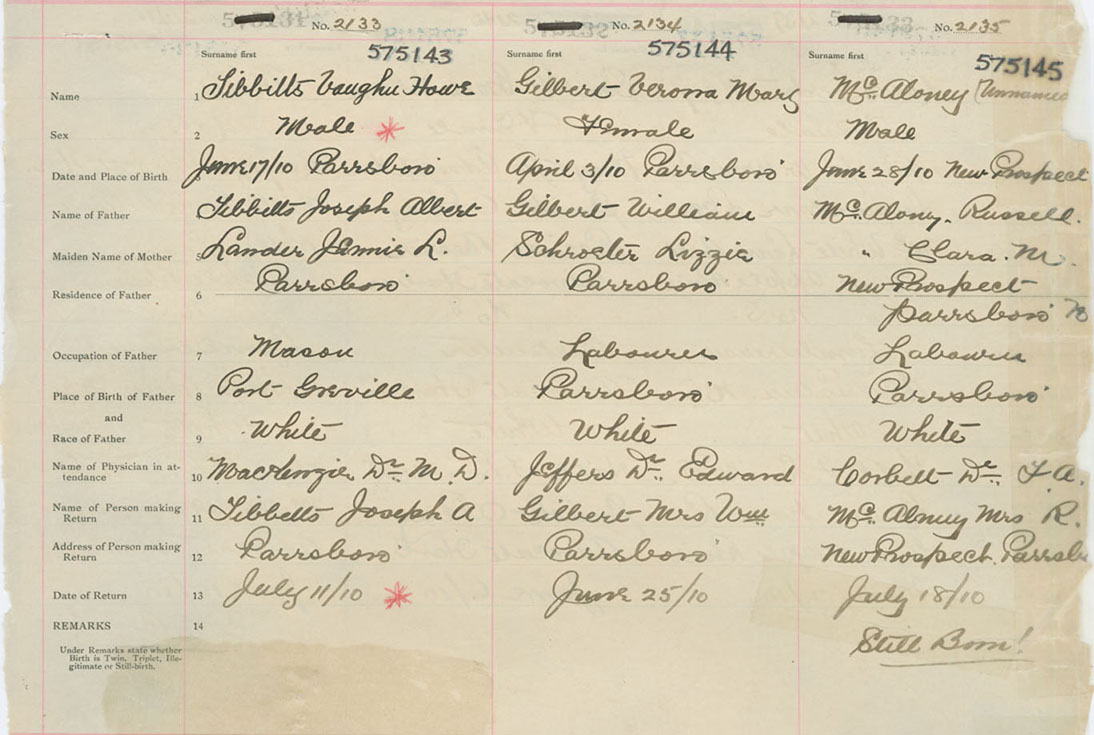 No. 2133 No. 2134 No. 2135
575143 575144 575145
Surname first Surname first Surname first
Name 1 Tibbitts Vaughn Howe Gilbert Verona Mary McAloney (Unnamed
Sex 2 Male * Female Male
Date and Place of Birth 3 June 17/10 Parrsboro April 3/10 Parrsboro June 28/10 New Prospect
Name of Father Tibbitts Joseph Albert Gilbert William McAlony, Russell.
Maiden Name of Mother 5 Lander Jennie L. Schroeter Lizzie " Clara. M.
Residence of Father 6 Parrsboro Parrsboro New Prospect
Parrsboro N
Occupation of Father 7 Mason Labourer Labourer
Place of Birth of Father 8 Port Greville Parrsboro Parrsboro
and
Race of Father 9 White White White
Name of Physician in at-
tendance 10 MacKenzie, Dr. M. D. Jeffers Dr. Edward Corbett Dr. F. A.
Name of Person making
Return 11 Tibbetts Joseph A Gilbert Mrs Wm McAloney Mrs R.
Address of Person making
Return 12 Parrsboro Parrsboro New Prospect. Parrsbo
Date of Return 13 July 11/10 * June 25/10 July 18/10
REMARKS 14
Still Born!
Under Remarks state whether
Birth is Twin, Triplet, Ille-
gitimate or Still-birth.